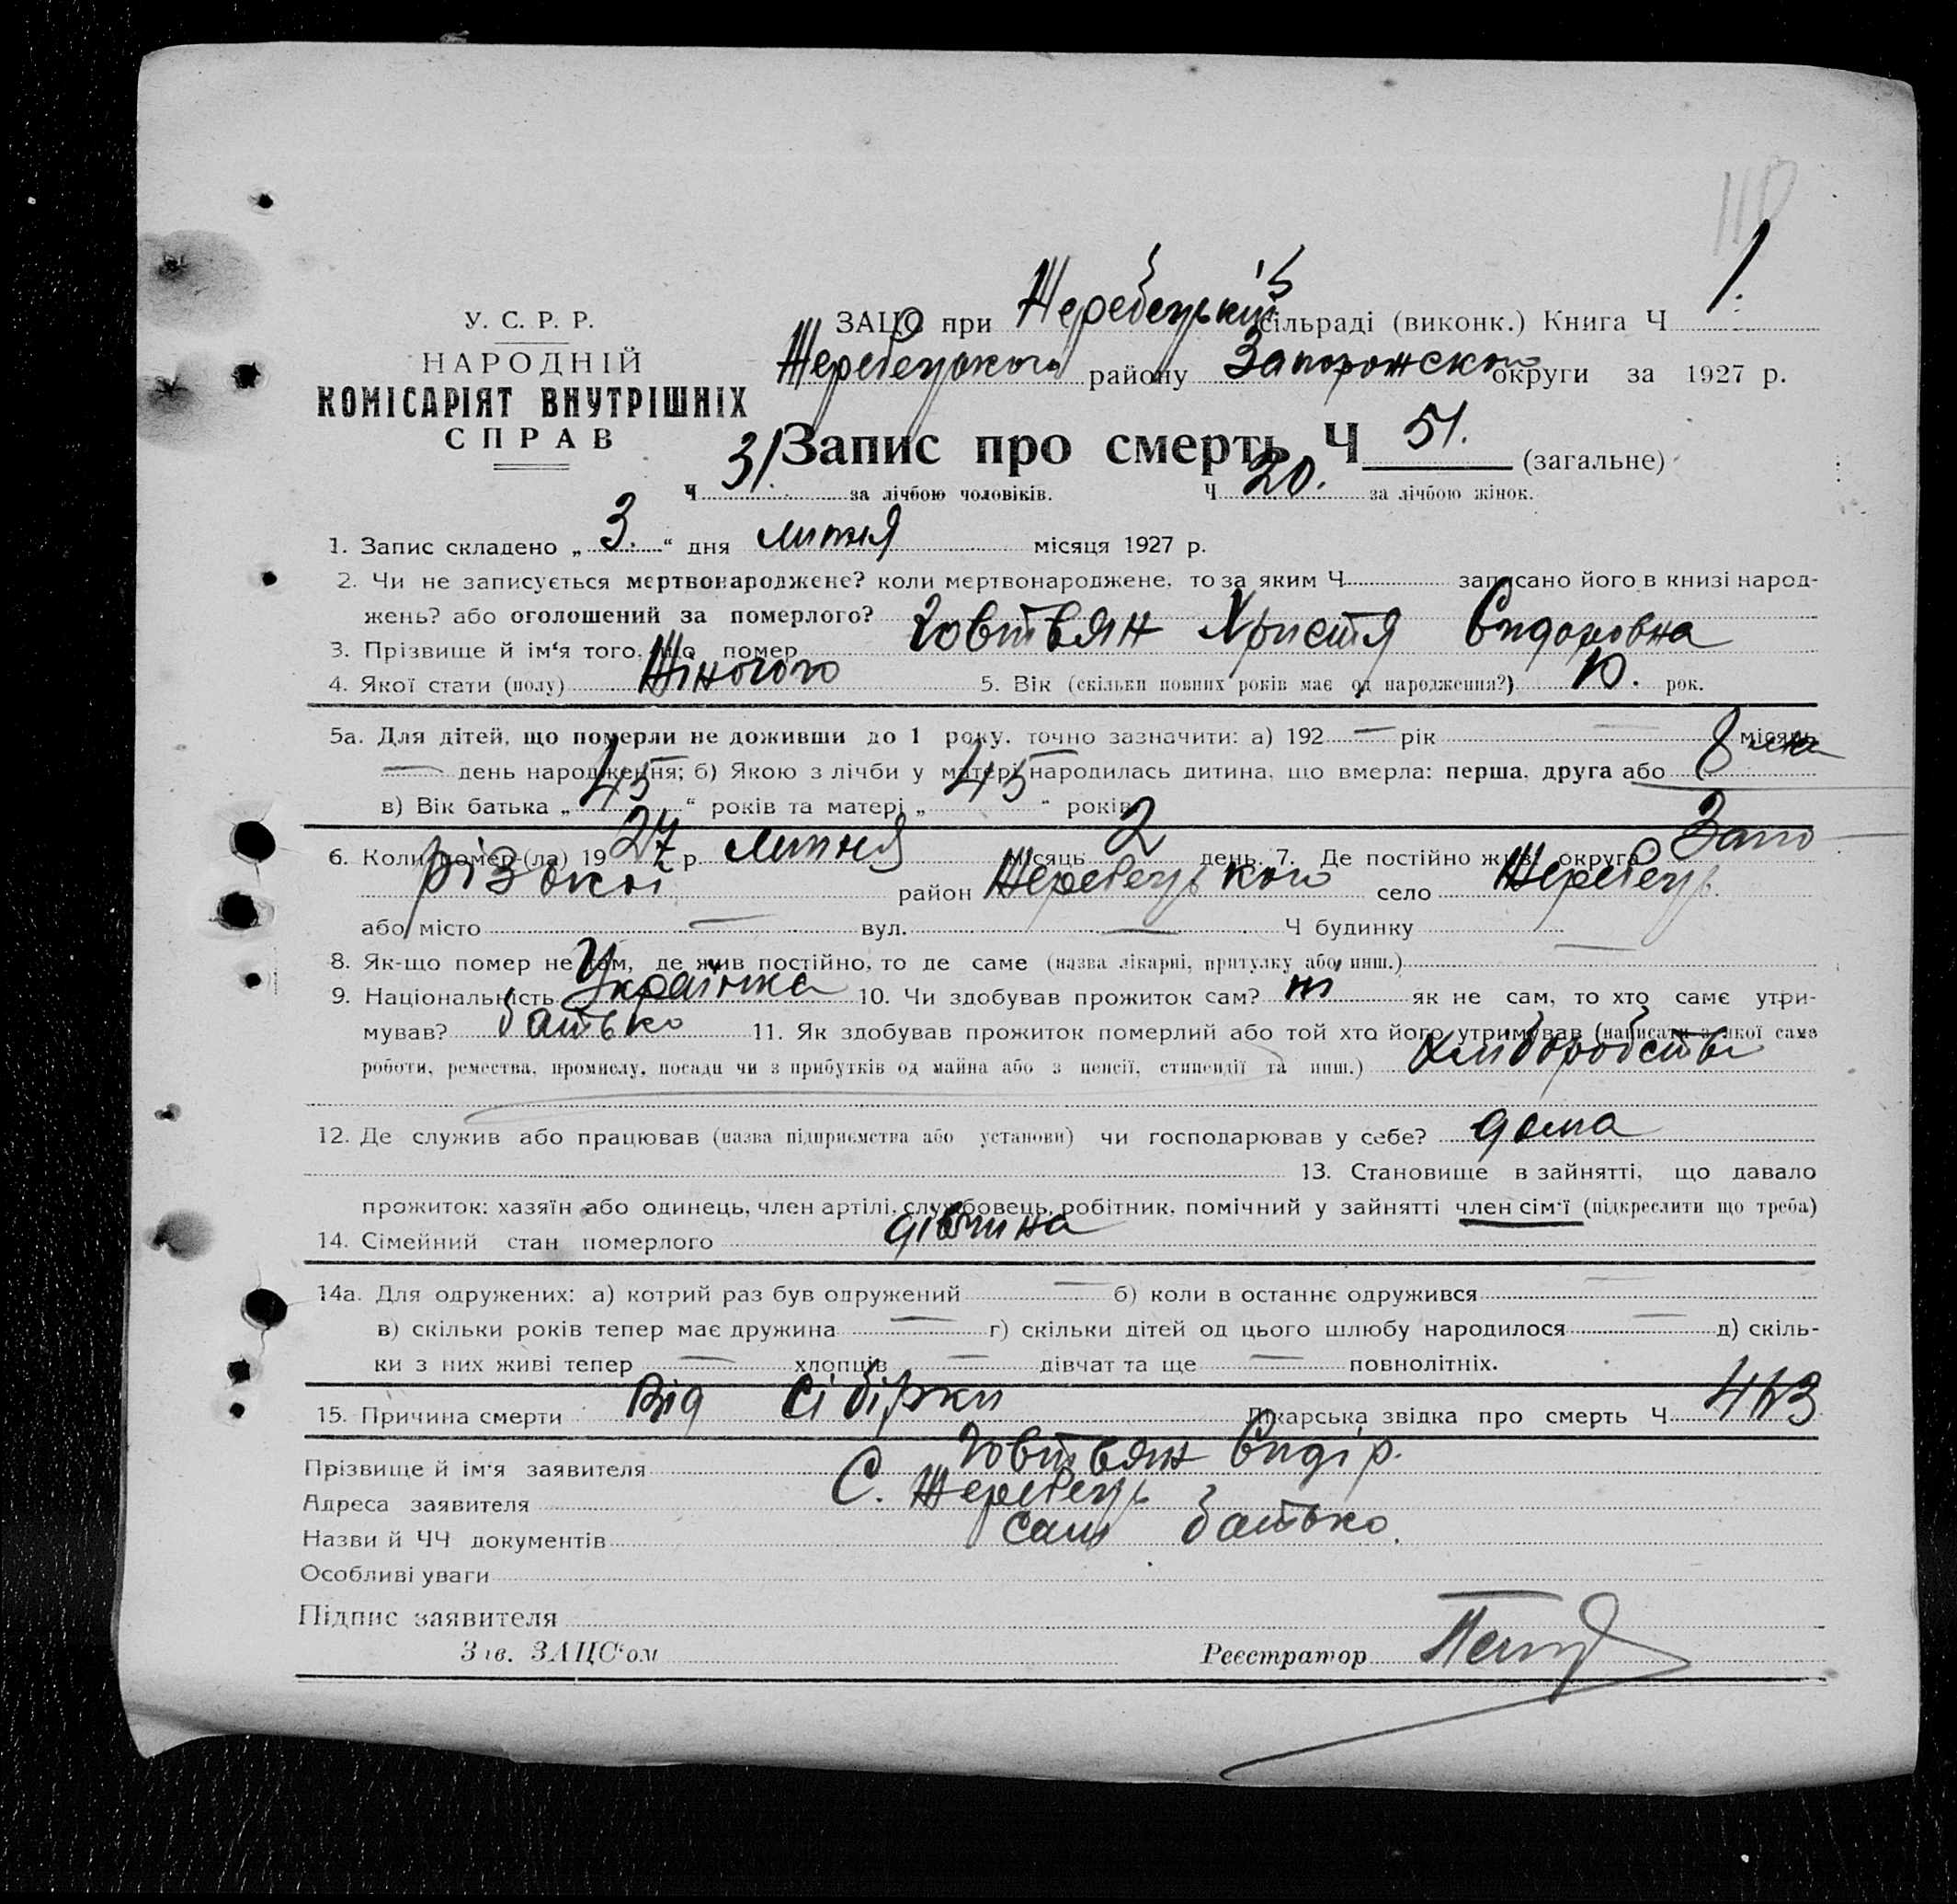 У. С. Р. Р.
НАРОДНІЙ
КОМІСАРІЯТ ВНУТРІШНІХ
СПРАВ
ЗАЦС при Жеребецькій сільраді (виконк.) Книга Ч 1.
Жеребецького району Запорожскої округи за 1927 р.
Запис про смерть Ч 51. (загальне)
Ч 31. за лічбою чоловіків. Ч 20. за лічбою жінок.
1. Запис складено „ 3. “ дня липня місяця 1927 р.
2. Чи не записується мертвонароджене? коли мертвонароджене, то за яким Ч записано його в книзі народ-
жень? або оголошений за померлого?
3. Прізвище й ім‘я того, що помер Говтвян Христя Сидоровна
4. Якої стати (полу) Жіночого 5. Вік (скільки повних років має од народження?) 10. рок.
5а. Для дітей, що померли не доживши до 1 року, точно зазначити: а) 192 — рік — місяць
— день народження; б) Якою з лічби у матері народилась дитина, що вмерла: перша, друга або 8
в) Вік батька „ 45 “ років та матері „ 45 “ років
6. Коли помер (ла) 19 27 р. липня місяць 2 день. 7. Де постійно жив: округа Запо
різької район Жеребецького село Жеребець.
або місто — вул. — Ч будинку —
8. Як-що помер не там, де жив постійно, то де саме (назва лікарні, притулку або инш.)
9. Національність Українка 10. Чи здобував прожиток сам? ні як не сам, то хто саме утри-
мував? батько 11. Як здобував прожиток померлий або той хто його утримував (написати з якої саме
роботи, ремества, промислу, посади чи з прибутків од майна або з пенсії, стипендії та инш.) хліборобство
12. Де служив або працював (назва підприємства або установи) чи господарював у себе? дома
13. Становище в зайнятті, що давало
прожиток: хазяїн або одинець, член артілі, службовець, робітник, помічний у зайнятті член сім‘ї (підкреслити що треба)
14. Сімейний стан померлого дівчина
14а. Для одружених: а) котрий раз був одружений — б) коли в останнє одружився —
в) скільки років тепер має дружина — г) скільки дітей од цього шлюбу народилося — д) скіль-
ки з них живі тепер — хлопців — дівчат та ще — повнолітніх.
15. Причина смерти Від сібірки Лікарська звідка про смерть Ч
Прізвище й ім‘я заявителя Говтвян Сидір.
Адреса заявителя С. Жеребець
Назви й ЧЧ документів сам батько.
Особливі уваги
Підпис заявителя
Зав. ЗАЦС‘ом Реєстратор